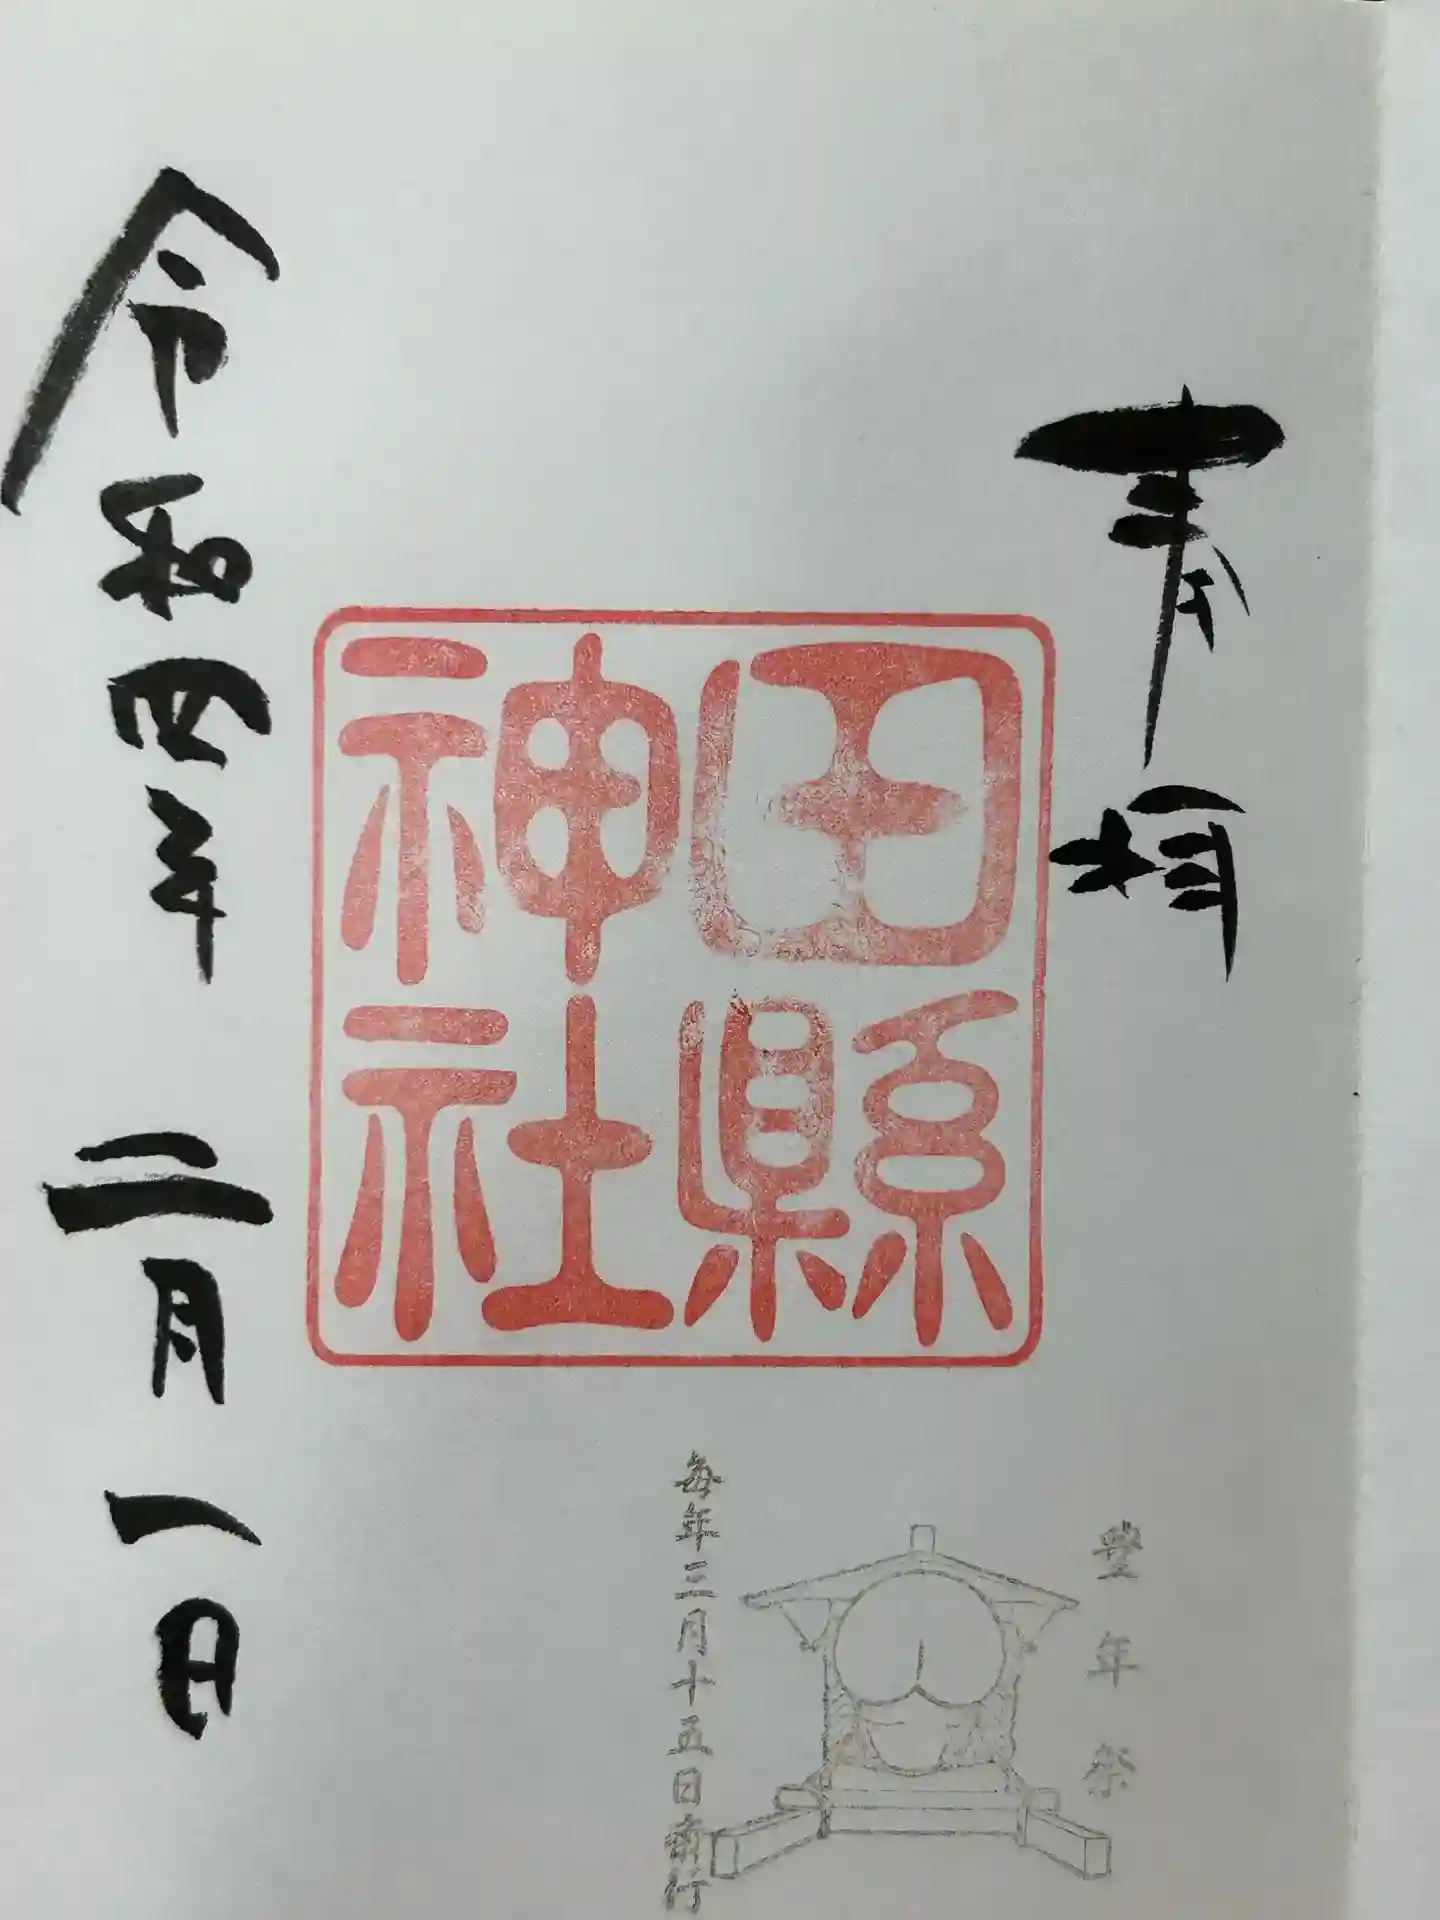 奉拝
田縣
神社
豊年祭
毎年三月十五日斎行
令和四年 二月一日